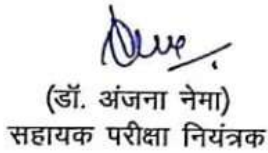 (डॉ. अंजना नेमा)
सहायक परीक्षा नियंत्रक